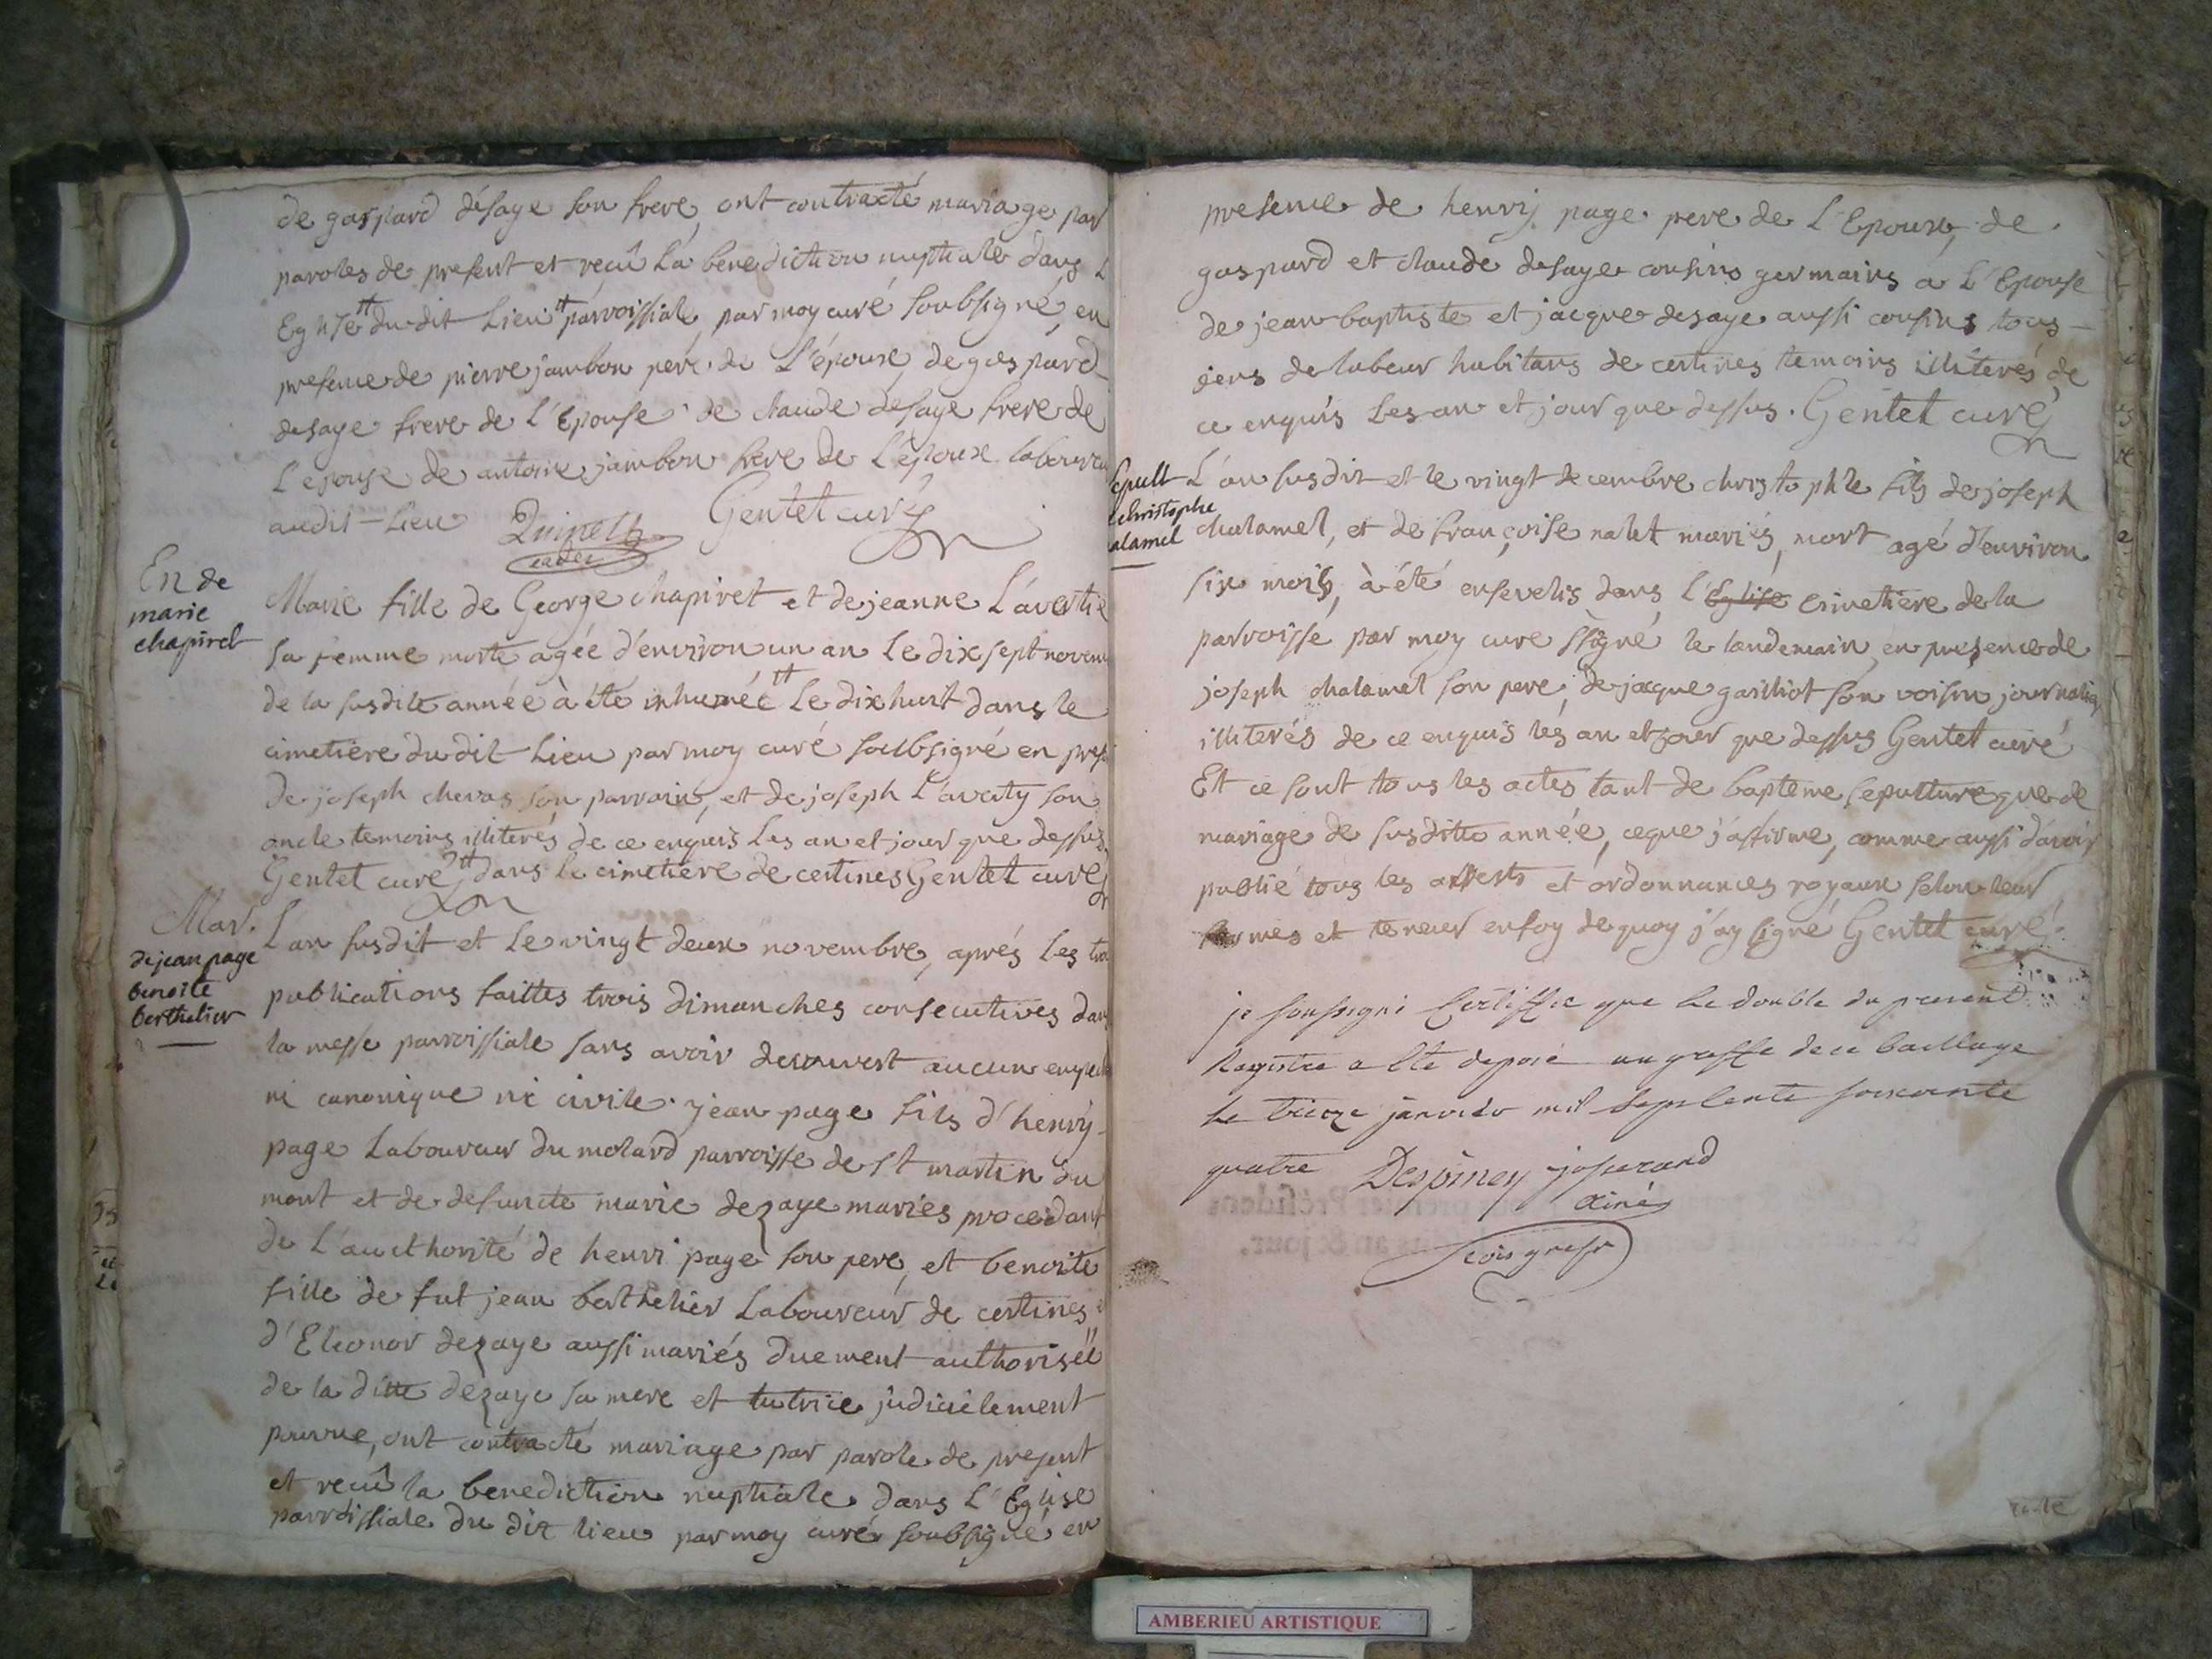 de gaspard désaye son frere, ont contracté mariage par
paroles de present et reçu la benediction nuptiale dans l
Eglise du dit Lieu parroissiale par moy curé soubsigné, en
presence de pierre jambon pere de L'époux, de gaspard
desaye frere de L'Epouse de claude desaye frere de
L'epouse de antoine jambon frere de L'époux laboureu
audit Lieu Gentet curé
En de
marie
chapiret
Marie fille de George chapiret et de jeanne L'avertie
sa femme morte agée d'environ un an Le dix sept novem
de la susdite année à été inhumée Le dix huit dans le
cimetiere du dit Lieu par moy curé soubsigné en prese
de joseph chevas son parrain, et de joseph L'averty son
oncle temoins illiterés de ce enquis Les an et jour que dessus.
Gentet curé dans le cimetiere de certines Gentet curé
Mar.
de jean page
benoite
berthelier
L'an susdit et Le vingt deux novembre, aprés Les tro
publications faittes trois dimanches consecutives dans
la messe parroissiale sans avoir descouvert aucun empech
ni canonique ni civile. jean page fils d'henry
page Laboureur du molard parroisse de st martin du
mont et de defuncte marie dezaye mariés procedant
de L'aucthorité de henri page son pere, et benoite
fille de fut jean berthelier Laboureur de certines e
d'Eleonor dezaye aussi mariés duement authorisée
de la ditte dezaye sa mere et tutrice judicielement
pourvue, ont contracté mariage par parole de present
et recû la benediction nuptiale dans L'Eglise
parroissiale du dit lieu par moy curé soubsigné en
presence de henry page pere de L'Epoux, de
gaspard et claude desaye cousins germains à L'Epouse
de jean baptiste et jacque desaye aussi cousins tous
gens de labeur habitans de certines temoins illiterés de
ce enquis Les an et jour que dessus. Gentet curé
Sepult
christophe
alamel
L'an susdit et le vingt decembre christophle fils de joseph
chalamel, et de françoise nalet mariés, mort agé d'environ
six mois, à été ensevelis dans L'Eglise cimetiere de la
parroisse par moy curé ssigné le landemain, en presence de
joseph chalamel son pere, de jacque gailliot son voisin journalier
illiterés de ce enquis les an et jour que dessus Gentet curé
Et ce sont tous les actes tant de bapteme sepulture que de
mariage de susditte année, ce que j'affirme, comme aussi d'avoir
publié tous les arrests et ordonnances royaux selon leur
formes et teneur en foy de quoy j'ay signé Gentet curé.
je soussigné Certiffie que le double du present
Registre a Eté deposé au greffe de ce baillage
le treize janvier mil sept cents soixante
quatre Despiney josserand
ainé
AMBERIEU ARTISTIQUE